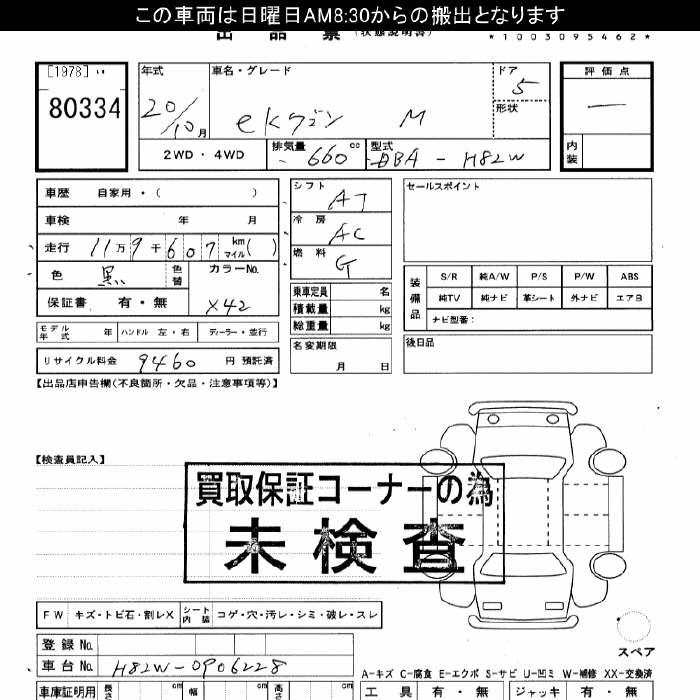 この車両は日曜日AM8:30からの搬出となります
出品票 (状態説明書)
*1003095462*
[1978]
80334
年式
20/10月
車名・グレード
ekワゴン M
ドア
5
形状
評価点
―
内装
2WD・4WD
排気量
660cc
型式
DBA-H82W
車歴 自家用・( )
車検 年 月
走行 11万9千607 km マイル( )
色 黒 色替 カラーNo.
X42
保証書 有・無
モデル年式 年 ハンドル 左・右 ディーラー・並行
リサイクル料金 9460 円 預託済
シフト AT
冷房 AC
燃料 G
乗車定員 名
積載量 kg
総重量 kg
名変期限
月 日
セールスポイント
装備品
S/R 純A/W P/S P/W ABS
純TV 純ナビ 革シート 外ナビ エアB
ナビ型番:
後日品
【出品店申告欄(不良箇所・欠品・注意事項等)】
【検査員記入】
買取保証コーナーの為
未検査
FW キズ・トビ石・割レX シート内装 コゲ・穴・汚レ・シミ・破レ・スレ
登録No.
車台No. H82W-0906228
スペア
A-キズ C-腐食 E-エクボ S-サビ U-凹ミ W-補修 XX-交換済
車庫証明用 長さ cm 幅 cm 高さ cm
工具 有・無 ジャッキ 有・無